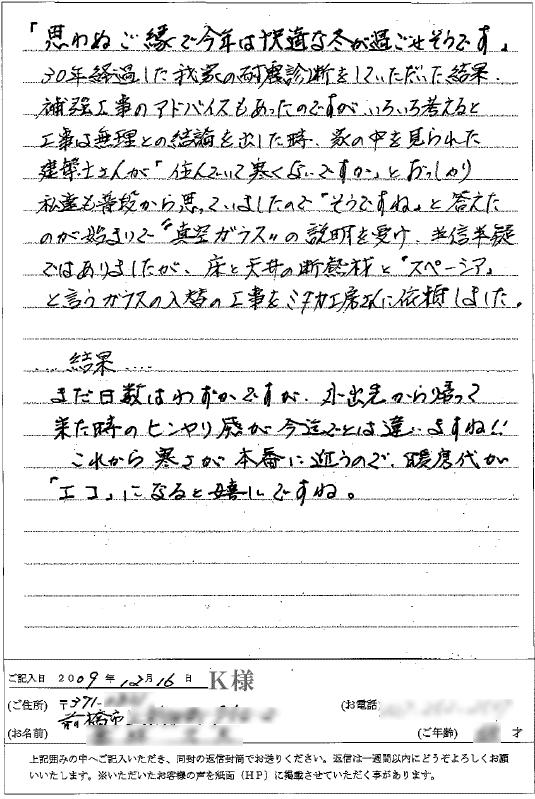 「思わぬご縁で今年は快適な冬が過ごせそうです」
30年経過した我家の耐震診断をしていただいた結果、
補強工事のアドバイスもあったのですが、いろいろ考えると
工事は無理との結論を出した時、家の中を見られた
建築士さんが「住んでいて寒くないですか」とおっしゃり
私達も普段から思っていましたので「そうですね」と答えた
のが始まりで“真空ガラス”の説明を受け、半信半疑
ではありましたが、床と天井の断熱材と「スペーシア」
と言うガラスの入替の工事をミタカ工房さんに依頼しました。
....結果....
まだ日数はわずかですが、外出先から帰って
来た時のヒンヤリ感が今迄とは違いますね!!
これから寒さが本番に近うので、暖房代が
「エコ」になると嬉しいですね。
ご記入日 2009年12月16日 K様
(ご住所) 〒371-
前橋市
(お電話)
(お名前)
(ご年齢) 才
上記囲みの中へご記入いただき、同封の返信封筒でお送りください。返信は一週間以内にどうぞよろしくお願
いいたします。※いただいたお客様の声を紙面(HP)に掲載させていただく事があります。